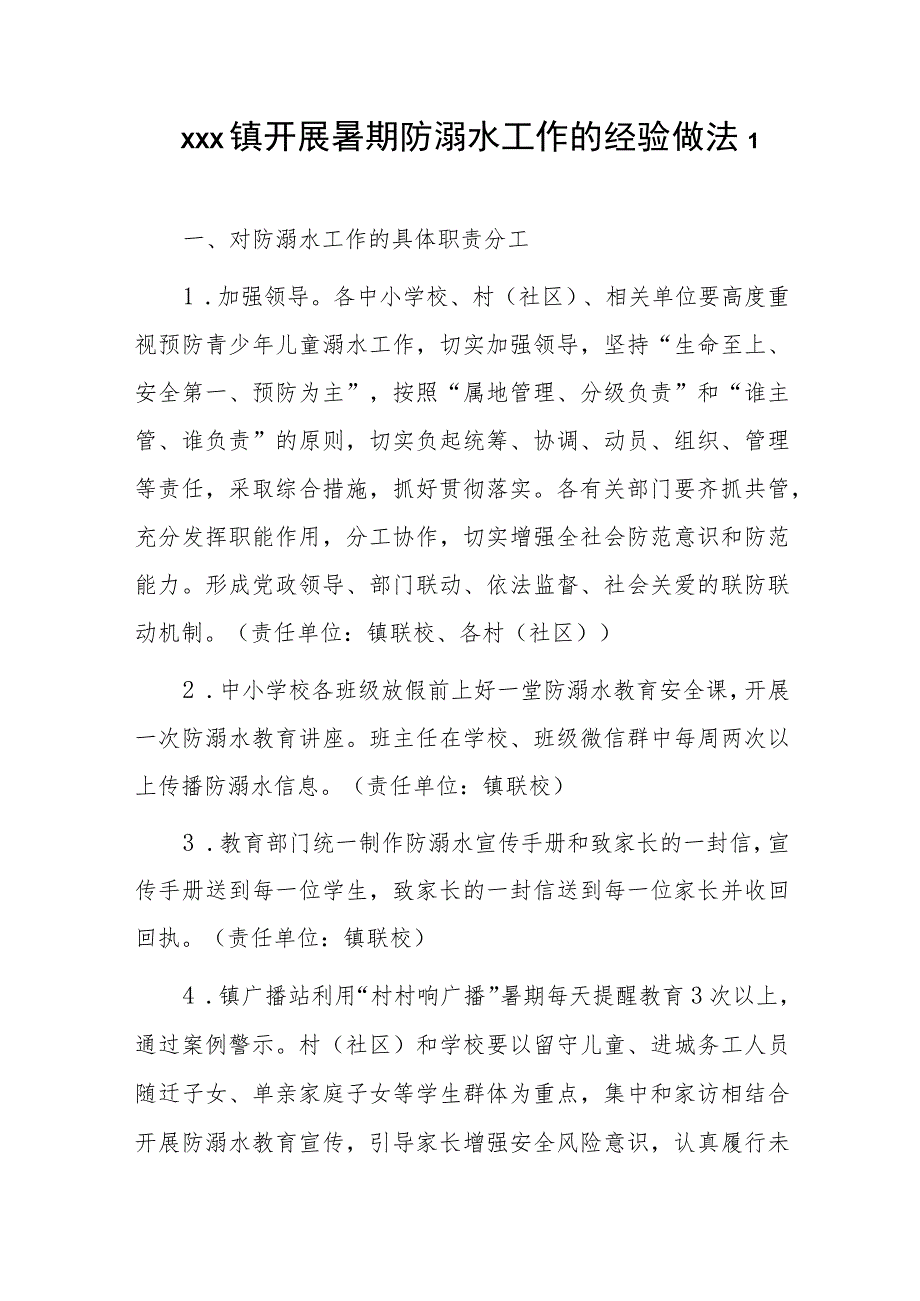 xxx镇开展暑期防溺水工作的经验做法1
一、对防溺水工作的具体职责分工
1.加强领导。各中小学校、村（社区）、相关单位要高度重
视预防青少年儿童溺水工作，切实加强领导，坚持“生命至上、
安全第一、预防为主”，按照“属地管理、分级负责”和“谁主
管、谁负责”的原则，切实负起统筹、协调、动员、组织、管理
等责任，采取综合措施，抓好贯彻落实。各有关部门要齐抓共管，
充分发挥职能作用，分工协作，切实增强全社会防范意识和防范
能力。形成党政领导、部门联动、依法监督、社会关爱的联防联
动机制。（责任单位：镇联校、各村（社区））
2.中小学校各班级放假前上好一堂防溺水教育安全课，开展
一次防溺水教育讲座。班主任在学校、班级微信群中每周两次以
上传播防溺水信息。（责任单位：镇联校）
3.教育部门统一制作防溺水宣传手册和致家长的一封信，宣
传手册送到每一位学生，致家长的一封信送到每一位家长并收回
回执。（责任单位：镇联校）
4.镇广播站利用“村村响广播”暑期每天提醒教育3次以上，
通过案例警示。村（社区）和学校要以留守儿童、进城务工人员
随迁子女、单亲家庭子女等学生群体为重点，集中和家访相结合
开展防溺水教育宣传，引导家长增强安全风险意识，认真履行未